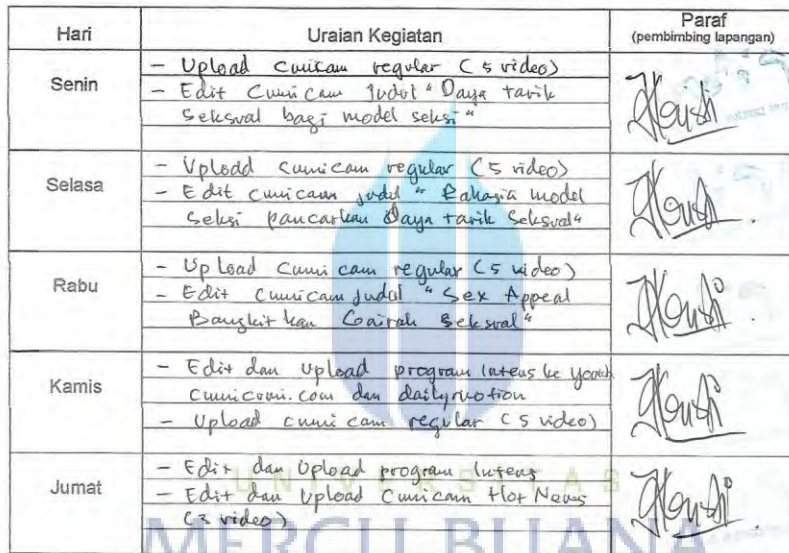 Hari Uraian Kegiatan Paraf
(pembimbing lapangan)
Senin
- Upload cumicam regular (5 video)
- Edit Cumicam judul "Daya tarik
Seksual bagi model seksi"
Selasa
- Upload cumicam regular (5 video)
- Edit cumicam judul " Rahasia model
Seksi pancarkan Daya tarik Seksual"
Rabu
- Upload Cumicam regular (5 video)
- Edit Cumicam judul " Sex Appeal
Bangkitkan Gairah Seksual"
Kamis
- Edit dan upload program Intens ke
cumicumi.com dan dailymotion
- Upload cumicam regular (5 video)
Jumat
- Edit dan Upload program Intens
- Edit dan Upload Cumicam Hot News
(3 video)
UNIVERSITAS
MERCU BUANA